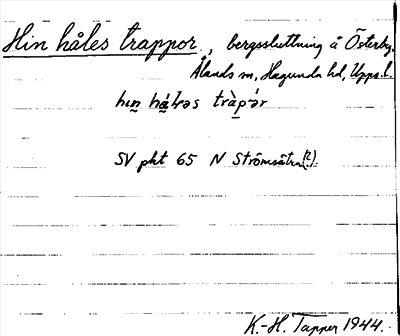 Hin håles trappor, bergssluttning å Österby,
Ålands sn, Hagunda hd, Upps. l.
hın hå̀ləs tràp·ər
SV pkt 65 N Strömsätra (?)
K.-H. Tapper 1944.